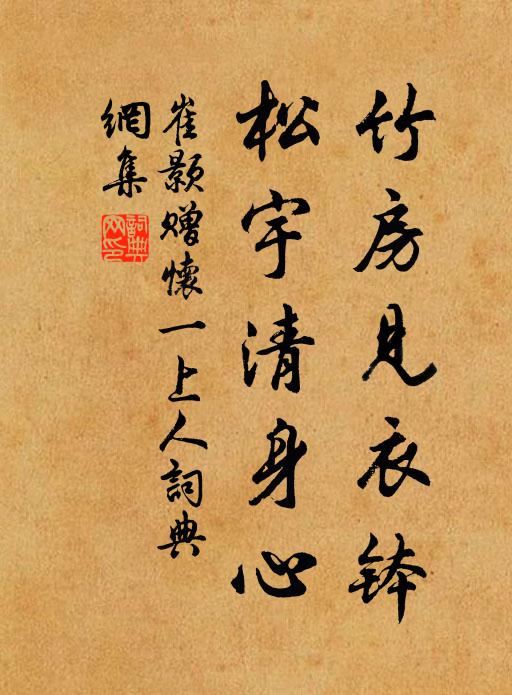 竹房見衣鉢
松宇清身心
崔顥贈懷一上人詞典
網集
詞典
网印